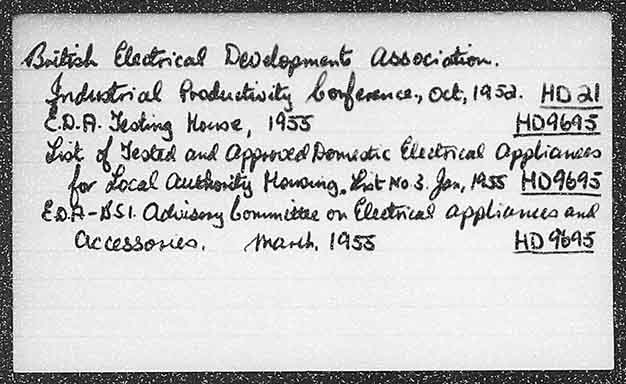 British Electrical Development Association.
Industrial Productivity Conference, Oct, 1952. HD 21
E.D.A. Testing House, 1955 HD9695
List of Tested and Approved Domestic Electrical Appliances
for Local Authority Housing. List No 3. Jan, 1955 HD9695
E.D.A-BSI. Advisory Committee on Electrical appliances and
Accessories. March, 1955 HD9695